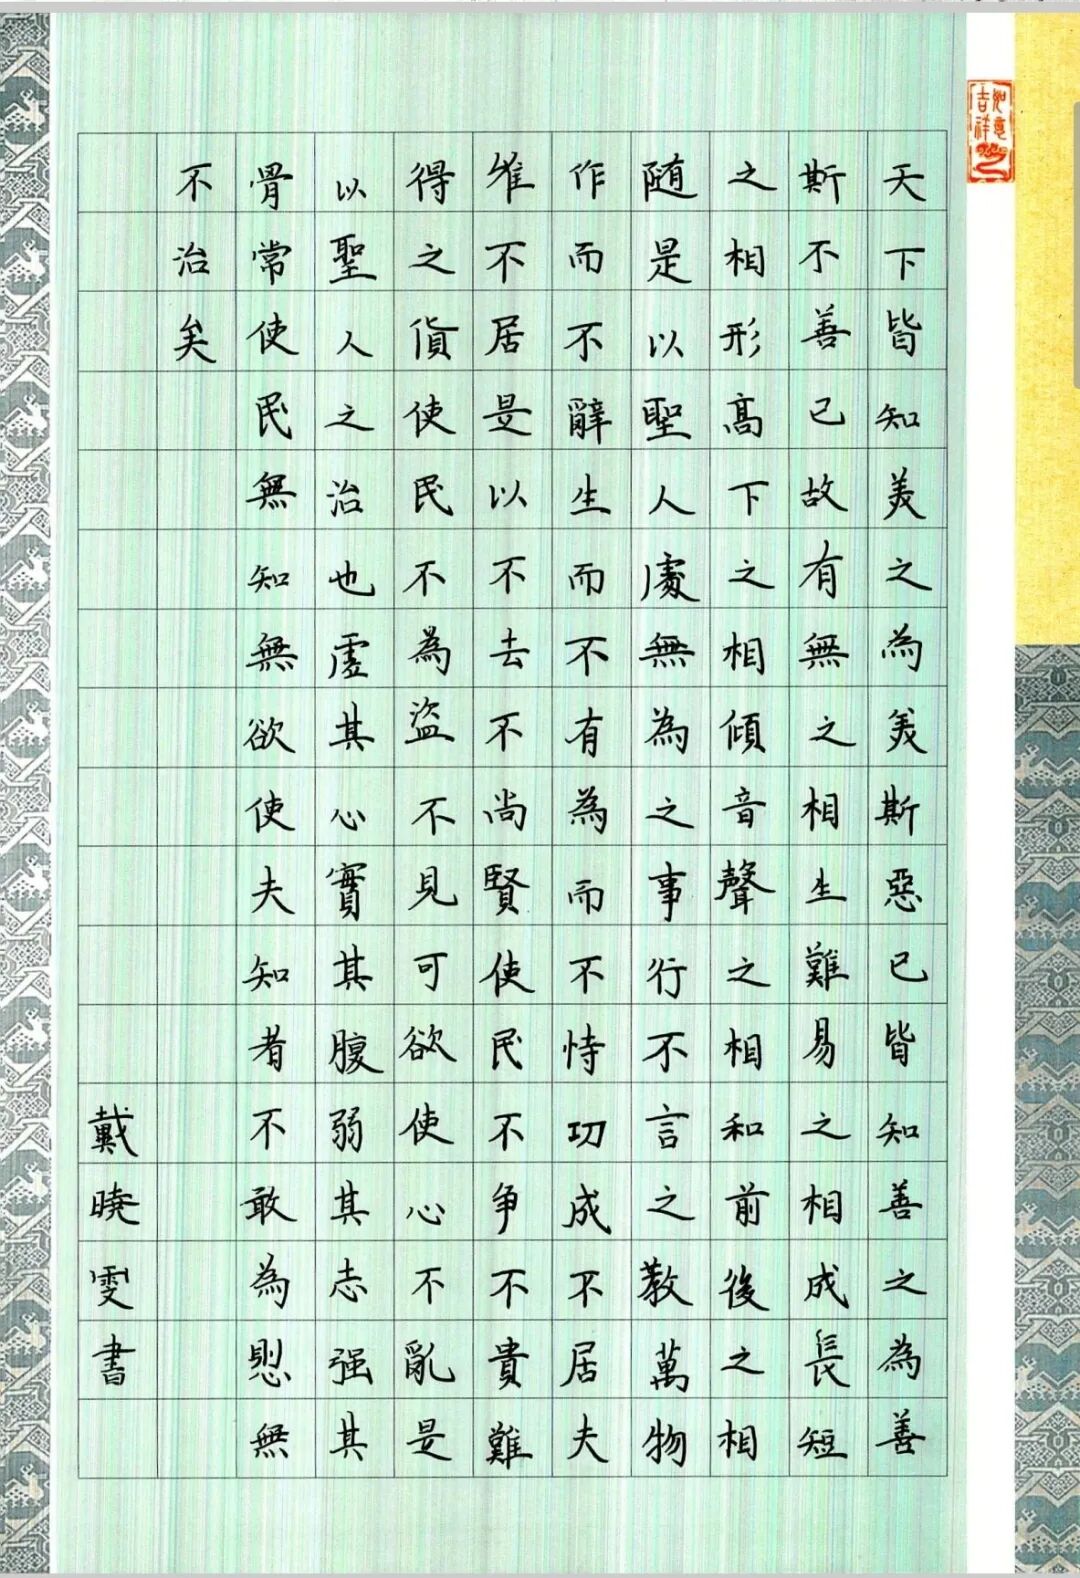 如意吉祥
天下皆知美之為美斯惡已皆知善之為善
斯不善已故有無之相生難易之相成長短
之相形高下之相傾音聲之相和前後之相
随是以聖人處無為之事行不言之教萬物
作而不辭生而不有為而不恃功成不居夫
惟不居是以不去不尚賢使民不争不貴難
得之貨使民不為盜不見可欲使心不亂是
以聖人之治也虛其心實其腹弱其志强其
骨常使民無知無欲使夫知者不敢為無
不治矣
戴曉雯書